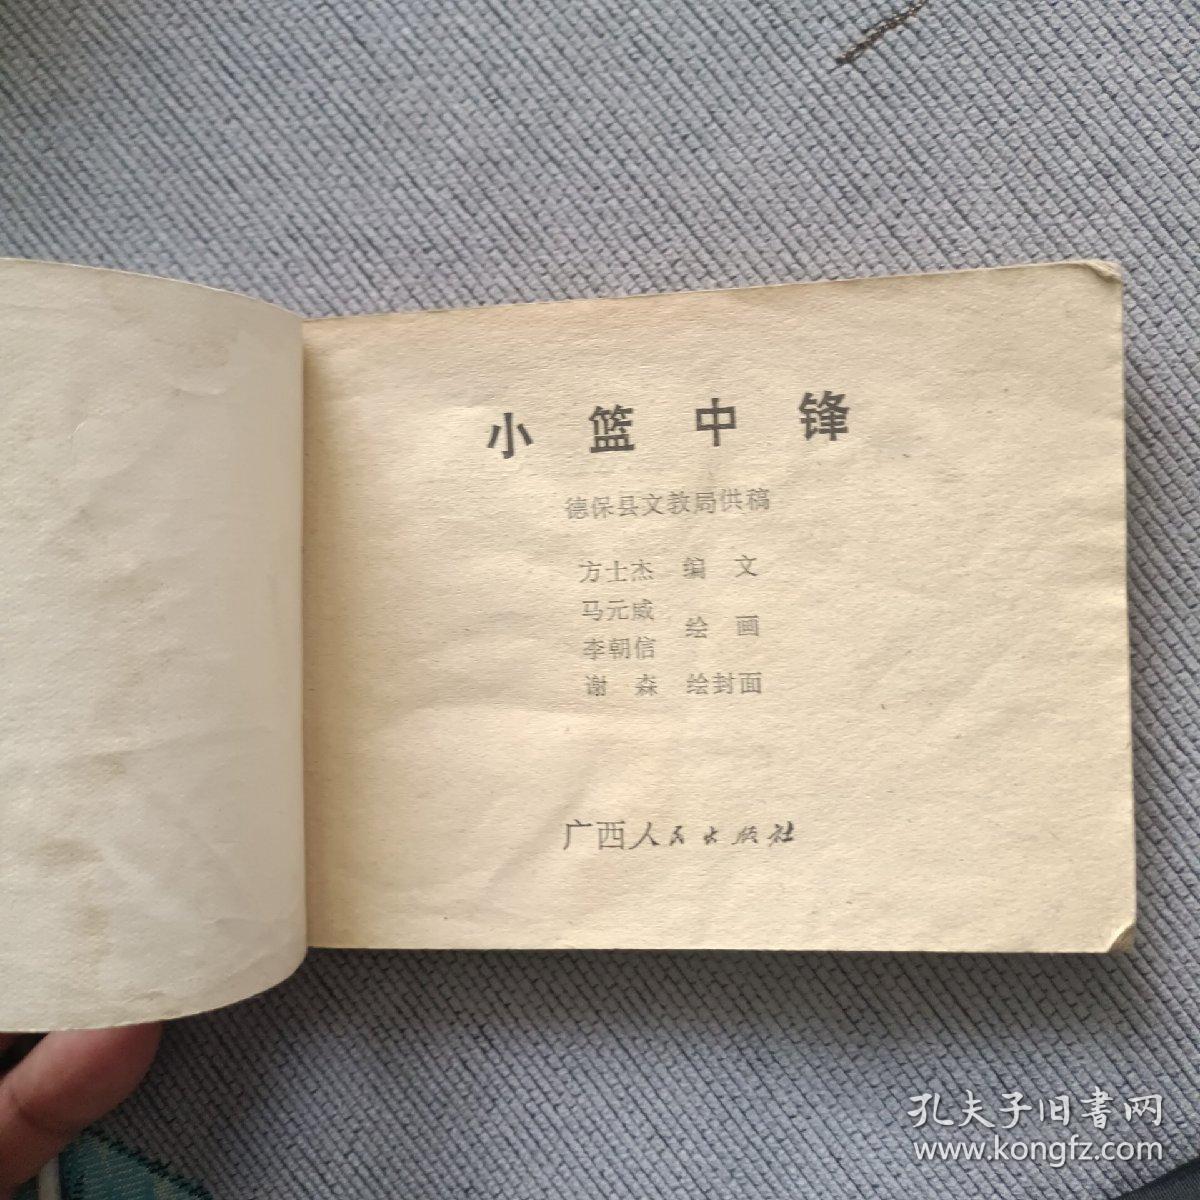 小篮中锋
德保县文教局供稿
方士杰 编文
马元威
李朝信 绘画
谢森 绘封面
广西人民出版社
孔夫子旧书网
www.kongfz.com